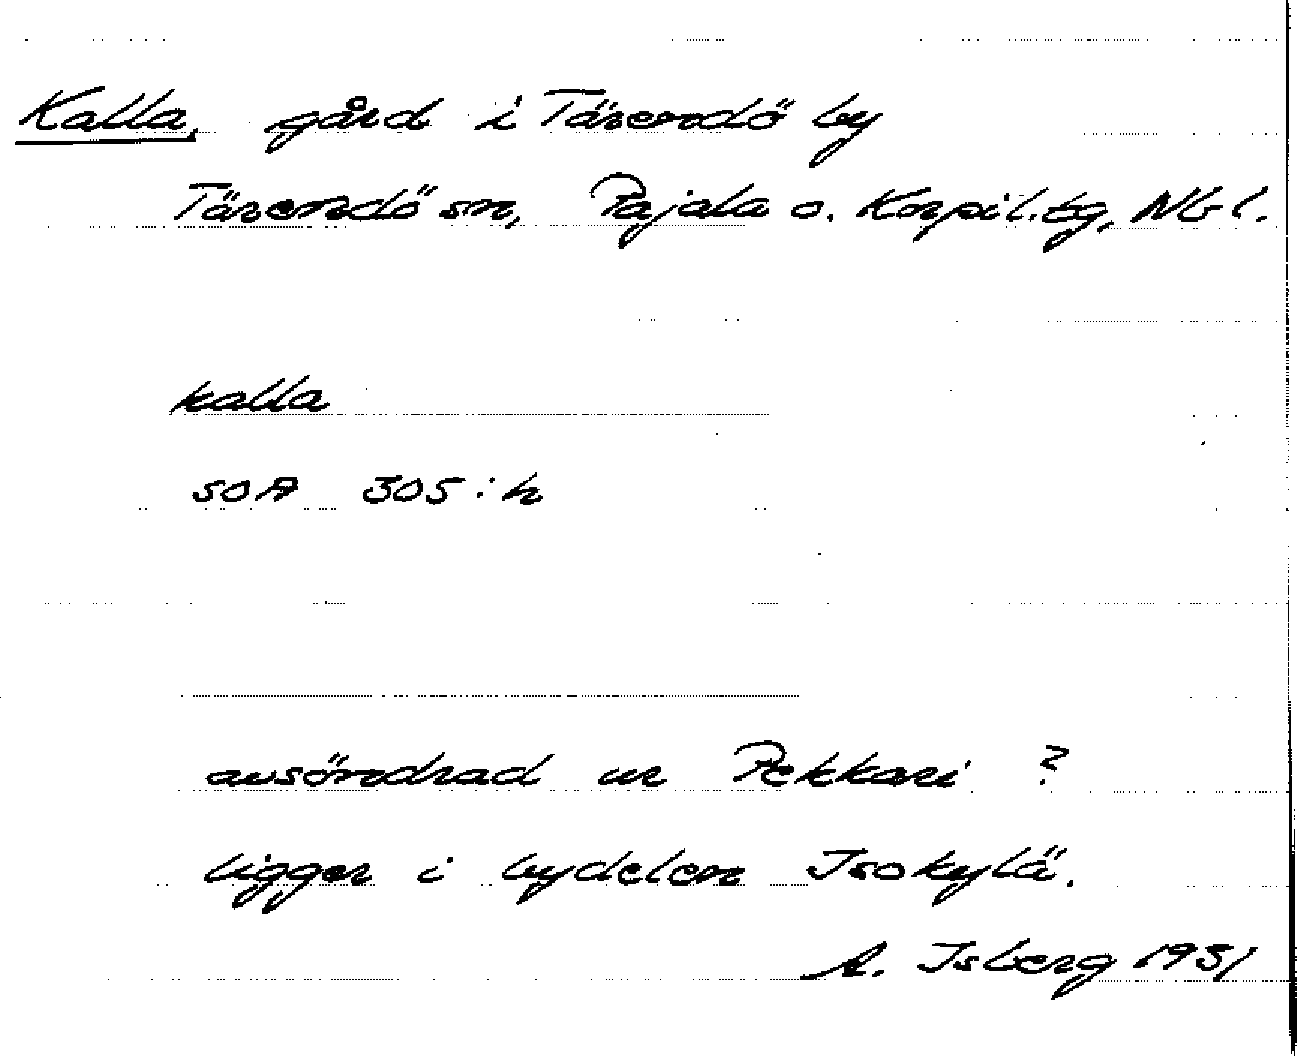 Kalla, gård i Tärendö by
Tärendö sn, Pajala o. Korpil. tg, Nb l.
kalla
SOA 305:h
avsöndrad ur Pekkari ?
ligger i bydelen Isokylä.
A. Isberg 1931